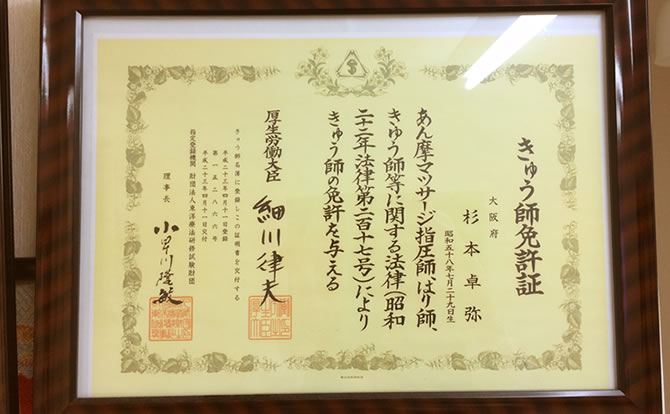 きゅう師免許証
大阪府
杉本卓弥
昭和五十八年七月二十九日生
あん摩マッサージ指圧師、はり師、
きゅう師等に関する法律(昭和
二十二年法律第二百十七号)により
きゅう師の免許を与える
厚生労働大臣 細川律夫
きゅう師名簿に登録しこの証明書を交付する
平成二十三年四月十一日登録
第一五二八六六号
平成二十三年四月十一日交付
指定登録機関 財団法人東洋療法研修試験財団
理事長 小早川隆敏